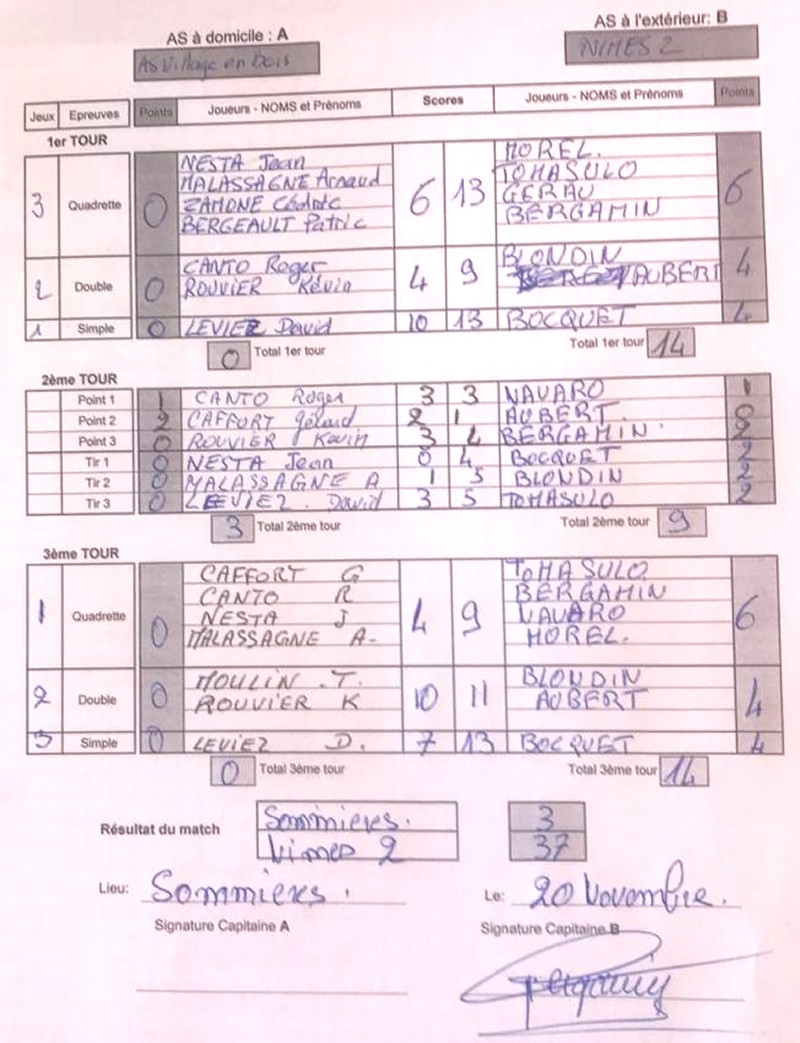 AS à domicile : A AS à l'extérieur: B
AS Village en bois NIMES 2
Jeux Epreuves Points Joueurs - NOMS et Prénoms Scores Joueurs - NOMS et Prénoms Points
1er TOUR
3 Quadrette 0 NESTA Jean 6 13 MOREL. 6
MALASSAGNE Arnaud TOMASULO
ZAMONE Cédric GERAU
BERGEAULT Patric BERGAMIN
2 Double 0 CANTO Roger 4 9 BLONDIN 4
ROUVIER Kévin AUBERT
1 Simple 0 LEVIEZ David 10 13 BOCQUET 4
0 Total 1er tour Total 1er tour 14
2ème TOUR
Point 1 1 CANTO Roger 3 3 NAVARO 1
Point 2 2 CAFFORT gélard 2 1 AUBERT. 0
Point 3 0 ROUVIER Kevin 3 4 BERGAMIN 2
Tir 1 0 NESTA Jean 0 4 BOCQUET 2
Tir 2 0 MALASSAGNE A 1 5 BLONDIN 2
Tir 3 0 LEVIEZ. David 3 5 TOMASULO 2
3 Total 2ème tour Total 2ème tour 9
3ème TOUR
1 Quadrette 0 CAFFORT G 4 9 TOMASULO 6
CANTO R BERGAMIN
NESTA J NAVARO
MALASSAGNE A- MOREL.
2 Double 0 MOULIN .T. 10 11 BLONDIN 4
ROUVIER K AUBERT
3 Simple 0 LEVIEZ D. 7 13 BOCQUET 4
0 Total 3ème tour Total 3ème tour 14
Résultat du match Sommieres. 3
Nimes 2 37
Lieu: Sommieres. Le: 20 Novembre.
Signature Capitaine A Signature Capitaine B